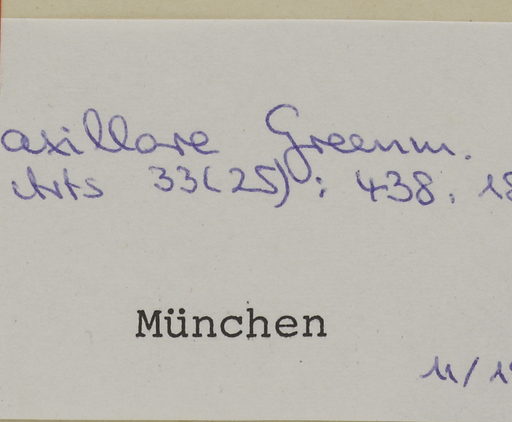 axillare Greenm.
Arts 33(25): 438. 18
München
11/19